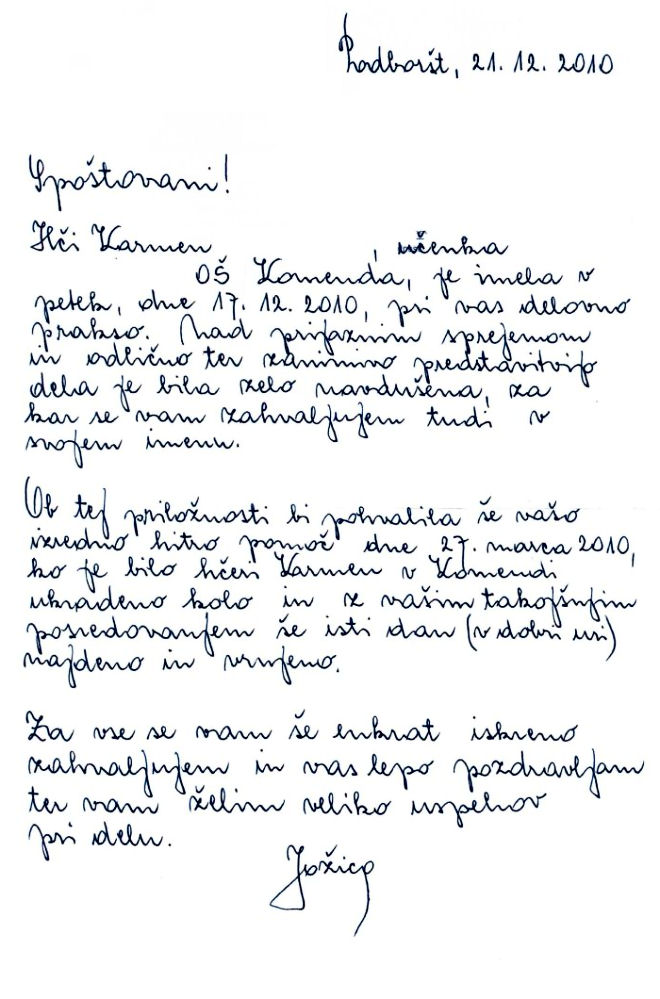 Podboršt, 21. 12. 2010
Spoštovani!
Hči Karmen , učenka
OŠ Komenda, je imela v
petek, dne 17. 12. 2010, pri vas delovno
prakso. Nad prijaznim sprejemom
in odlično ter zanimivo predstavitvijo
dela je bila zelo navdušena, za
kar se vam zahvaljujem tudi v
svojem imenu.
Ob tej priložnosti bi pohvalila še vašo
izredno hitro pomoč dne 27. marca 2010,
ko je bilo hčeri Karmen v Komendi
ukradeno kolo in z vašim takojšnjim
posredovanjem še isti dan (v dobri uri)
najdeno in vrnjeno.
Za vse se vam še enkrat iskreno
zahvaljujem in vas lepo pozdravljam
ter vam želim veliko uspehov
pri delu.
Jožica